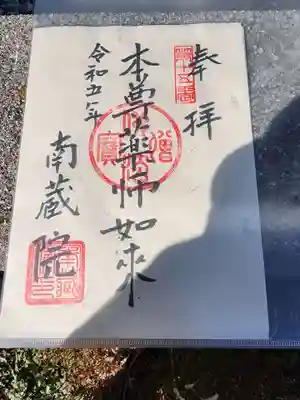 奉拝
本尊薬師如来
令和五年
南蔵院